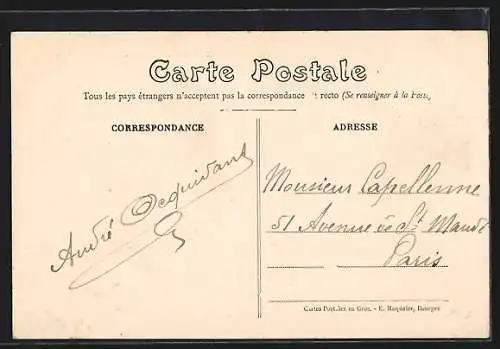 Carte Postale
Tous les pays étrangers n'acceptent pas la correspondance recto (Se renseigner à la Poste)
CORRESPONDANCE
ADRESSE
André
Monsieur Capellenne
51 Avenue de St Mandé
Paris
Cartes Postales en Gros. - E. Maquaire, Bourges